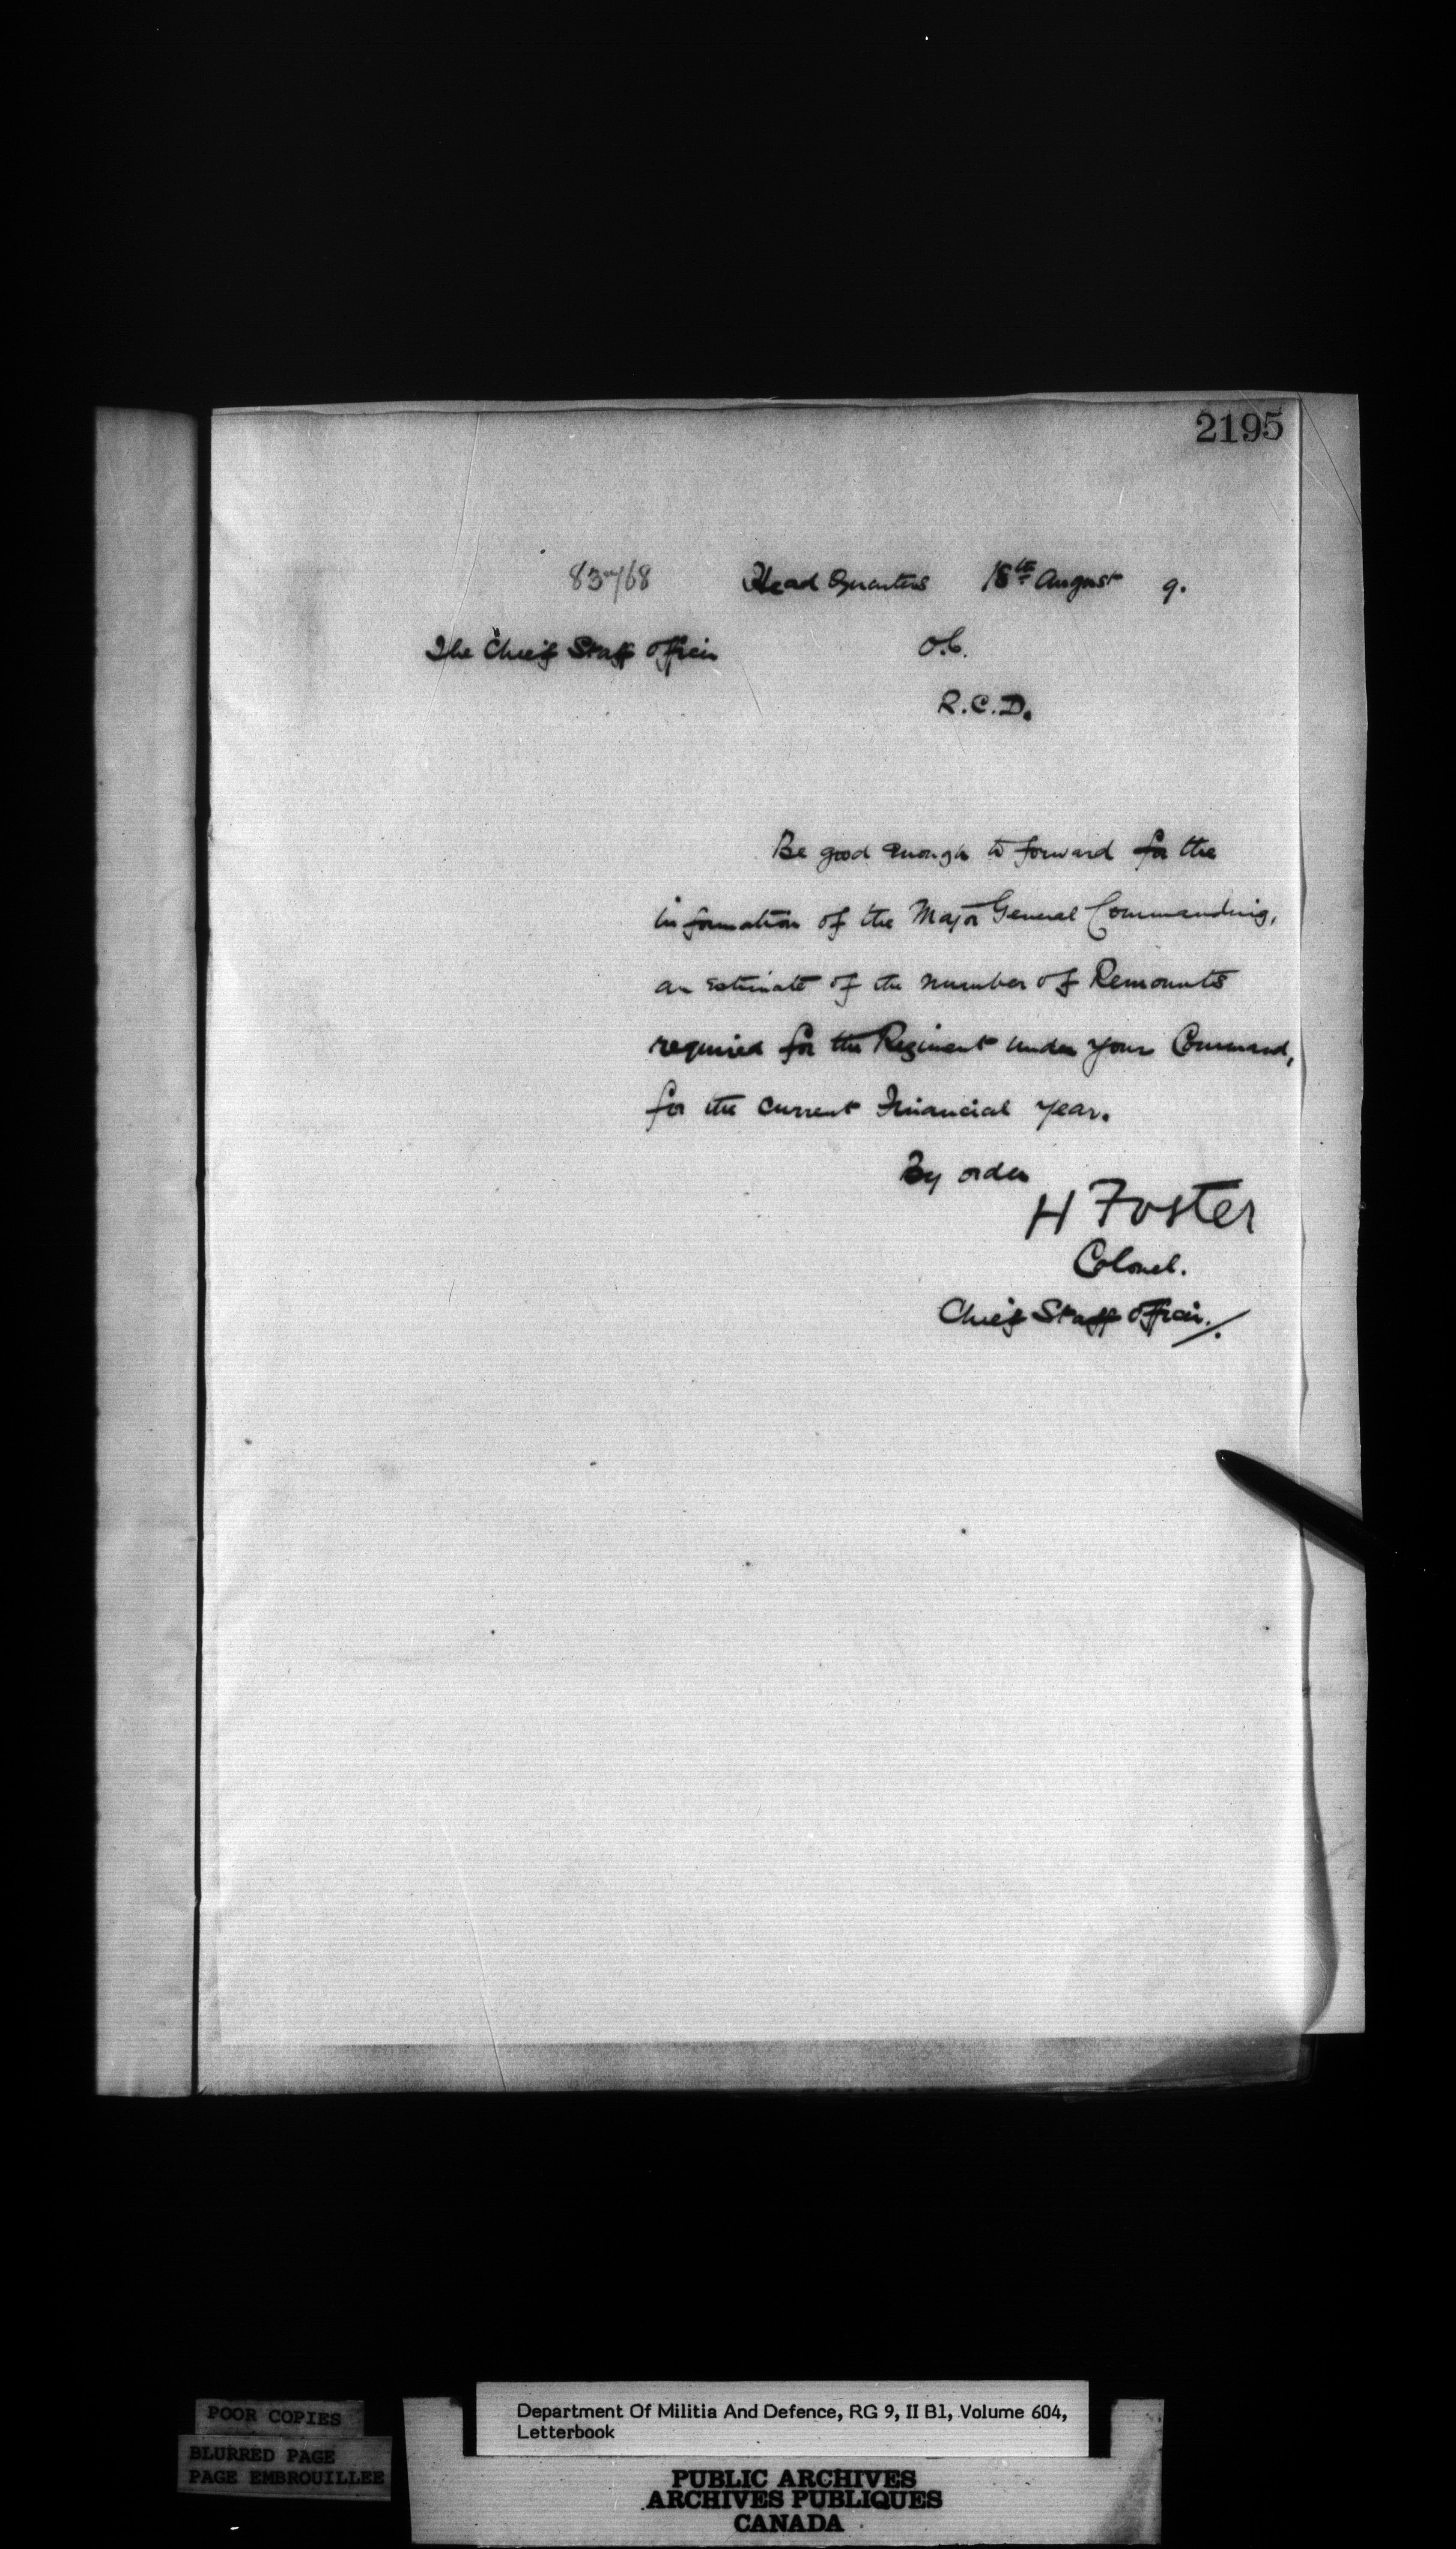 2195
83-/68 Head Quarters 18th August 9.
The Chief Staff Officer O.C.
R.C.D.
Be good enough to forward for the
information of the Major General Commanding,
an estimate of the number of Remounts
required for the Regiment under your Command,
for the current Financial year.
By order
H Foster
Colonel.
Chief Staff Officer.
POOR COPIES
BLURRED PAGE
PAGE EMBROUILLEE
Department Of Militia And Defence, RG 9, II B1, Volume 604,
Letterbook
PUBLIC ARCHIVES
ARCHIVES PUBLIQUES
CANADA